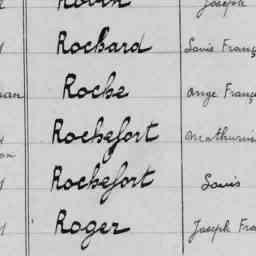 Joseph
Rochard Louis Franç
Roche Ange Franç
Rochefort Mathurin
Rochefort Louis
Roger Joseph Fra